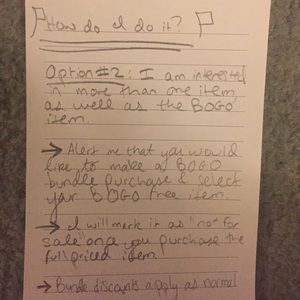 How do I do it?
Option #2: I am interested
in more than one item
as well as the BOGO
item.
→ Alert me that you would
like to make a BOGO
bundle purchase & select
your BOGO free item.
→ I will mark it as "not for
sale" once you purchase the
full priced item!
→ Bundle discounts apply as normal